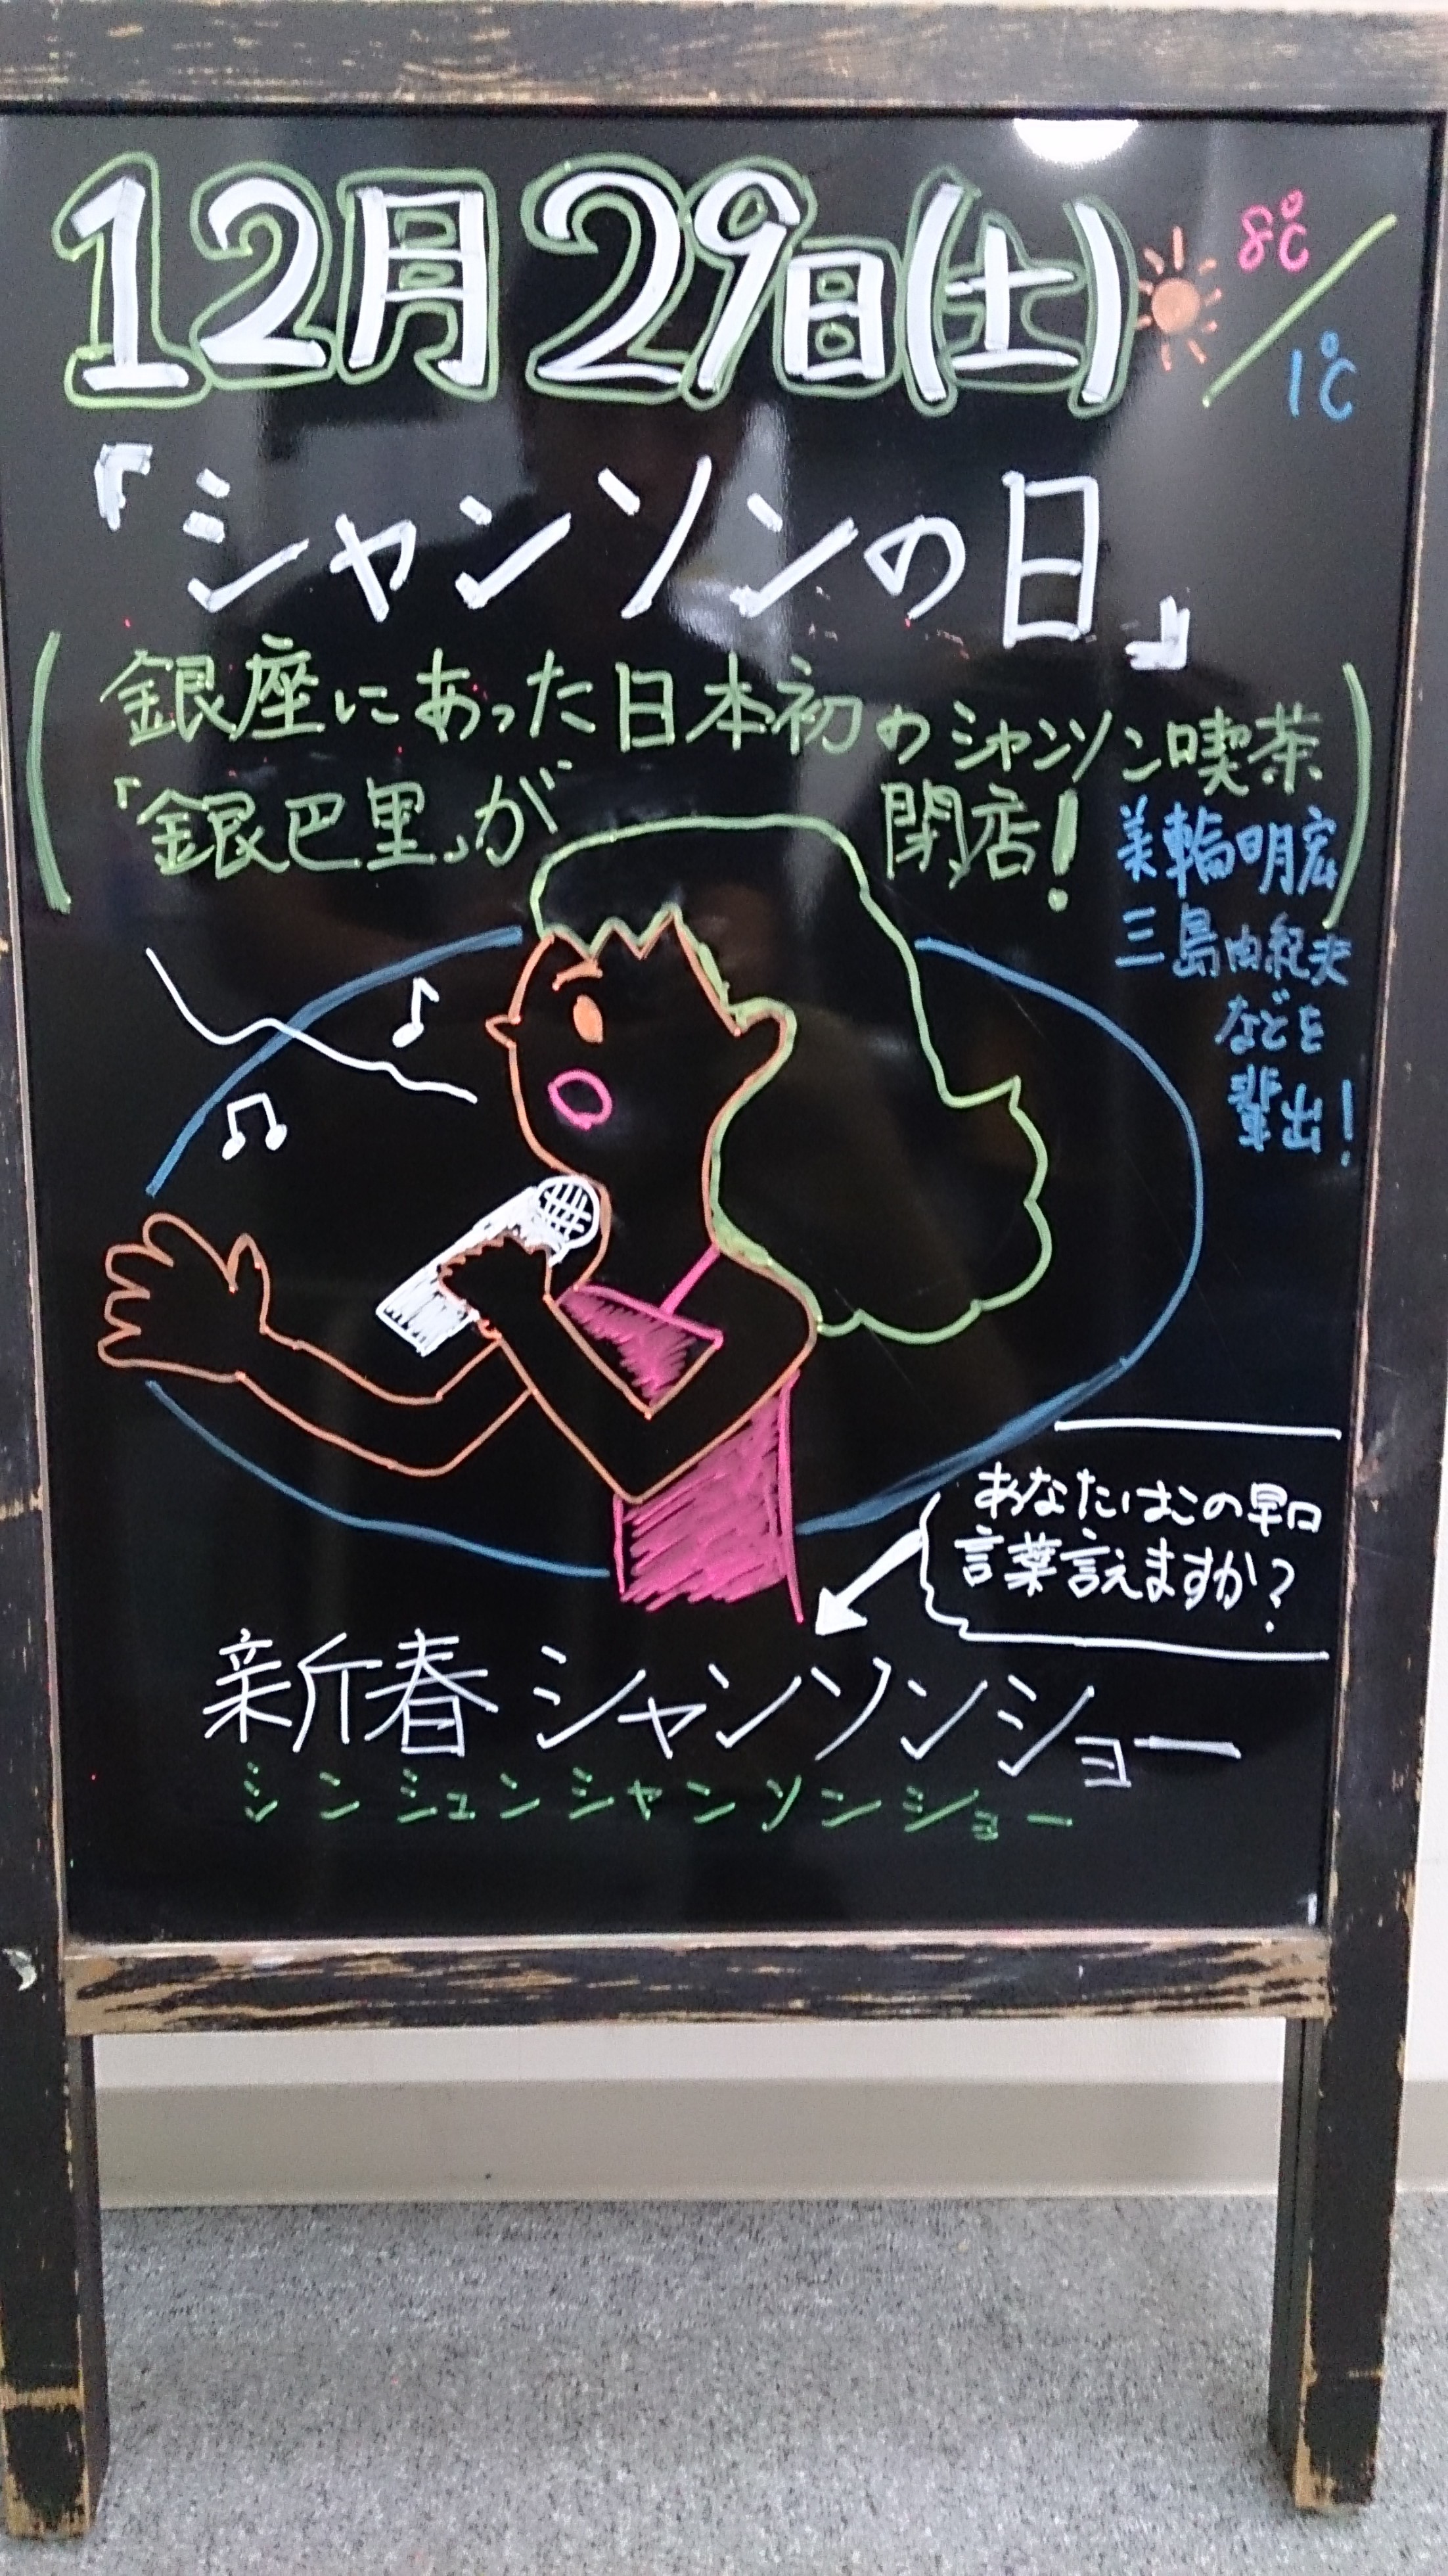 12月29日(土)
8℃/1℃
『シャンソンの日』
(銀座にあった日本初のシャンソン喫茶
『銀巴里』が閉店!)
美輪明宏
三島由紀夫
などを
輩出!
あなたはこの早口
言葉言えますか?
新春シャンソンショー
シンシュンシャンソンショー